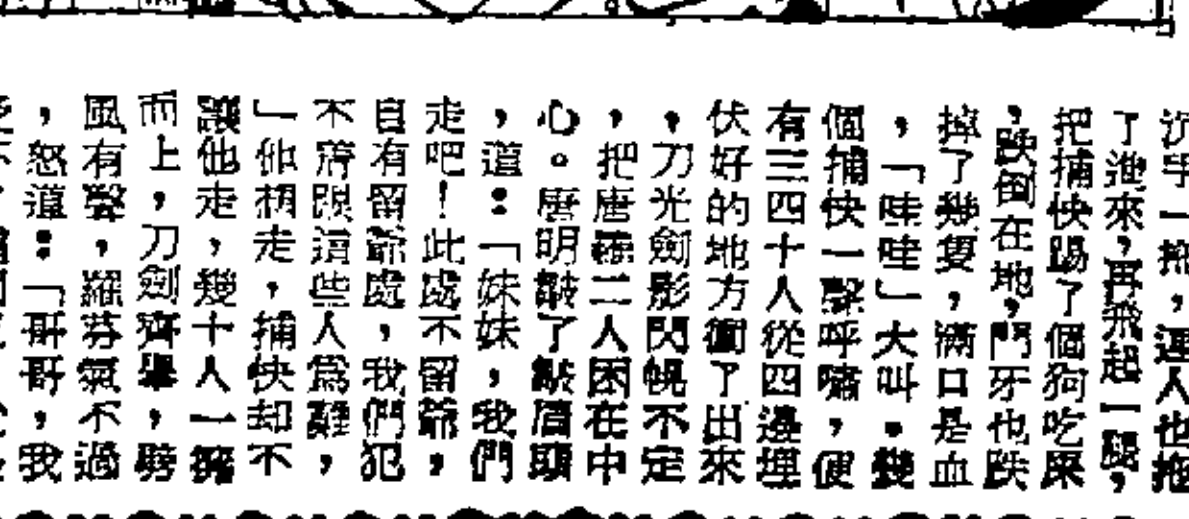 沉手一拖，連人也拖
了進來，再飛起一腿，
把捕快踢了個狗吃屎
，跌倒在地，門牙也跌
掉了幾隻，滿口是血
，「哇哇」大叫。幾
個捕快一聲呼嘯，便
有三四十人從四邊埋
伏好的地方衝了出來
，刀光劍影閃幌不定
，把唐龍二人困在中
心。唐明皺了皺眉頭
，道：「妹妹，我們
走吧！此處不留爺，
自有留爺處，我們犯
不着跟這些人為難，
」他想走，捕快却不
讓他走，幾十人一擁
而上，刀劍齊舉，劈
風有聲，羅芬氣不過
，怒道：「哥哥，我